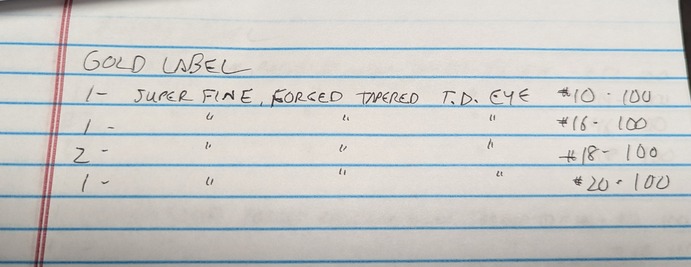 GOLD LABEL
1- SUPER FINE, FORGED TAPERED T.D. EYE #10 - 100
1 - " " " #16 - 100
2 - " " " #18 - 100
1 - " " " #20 - 100